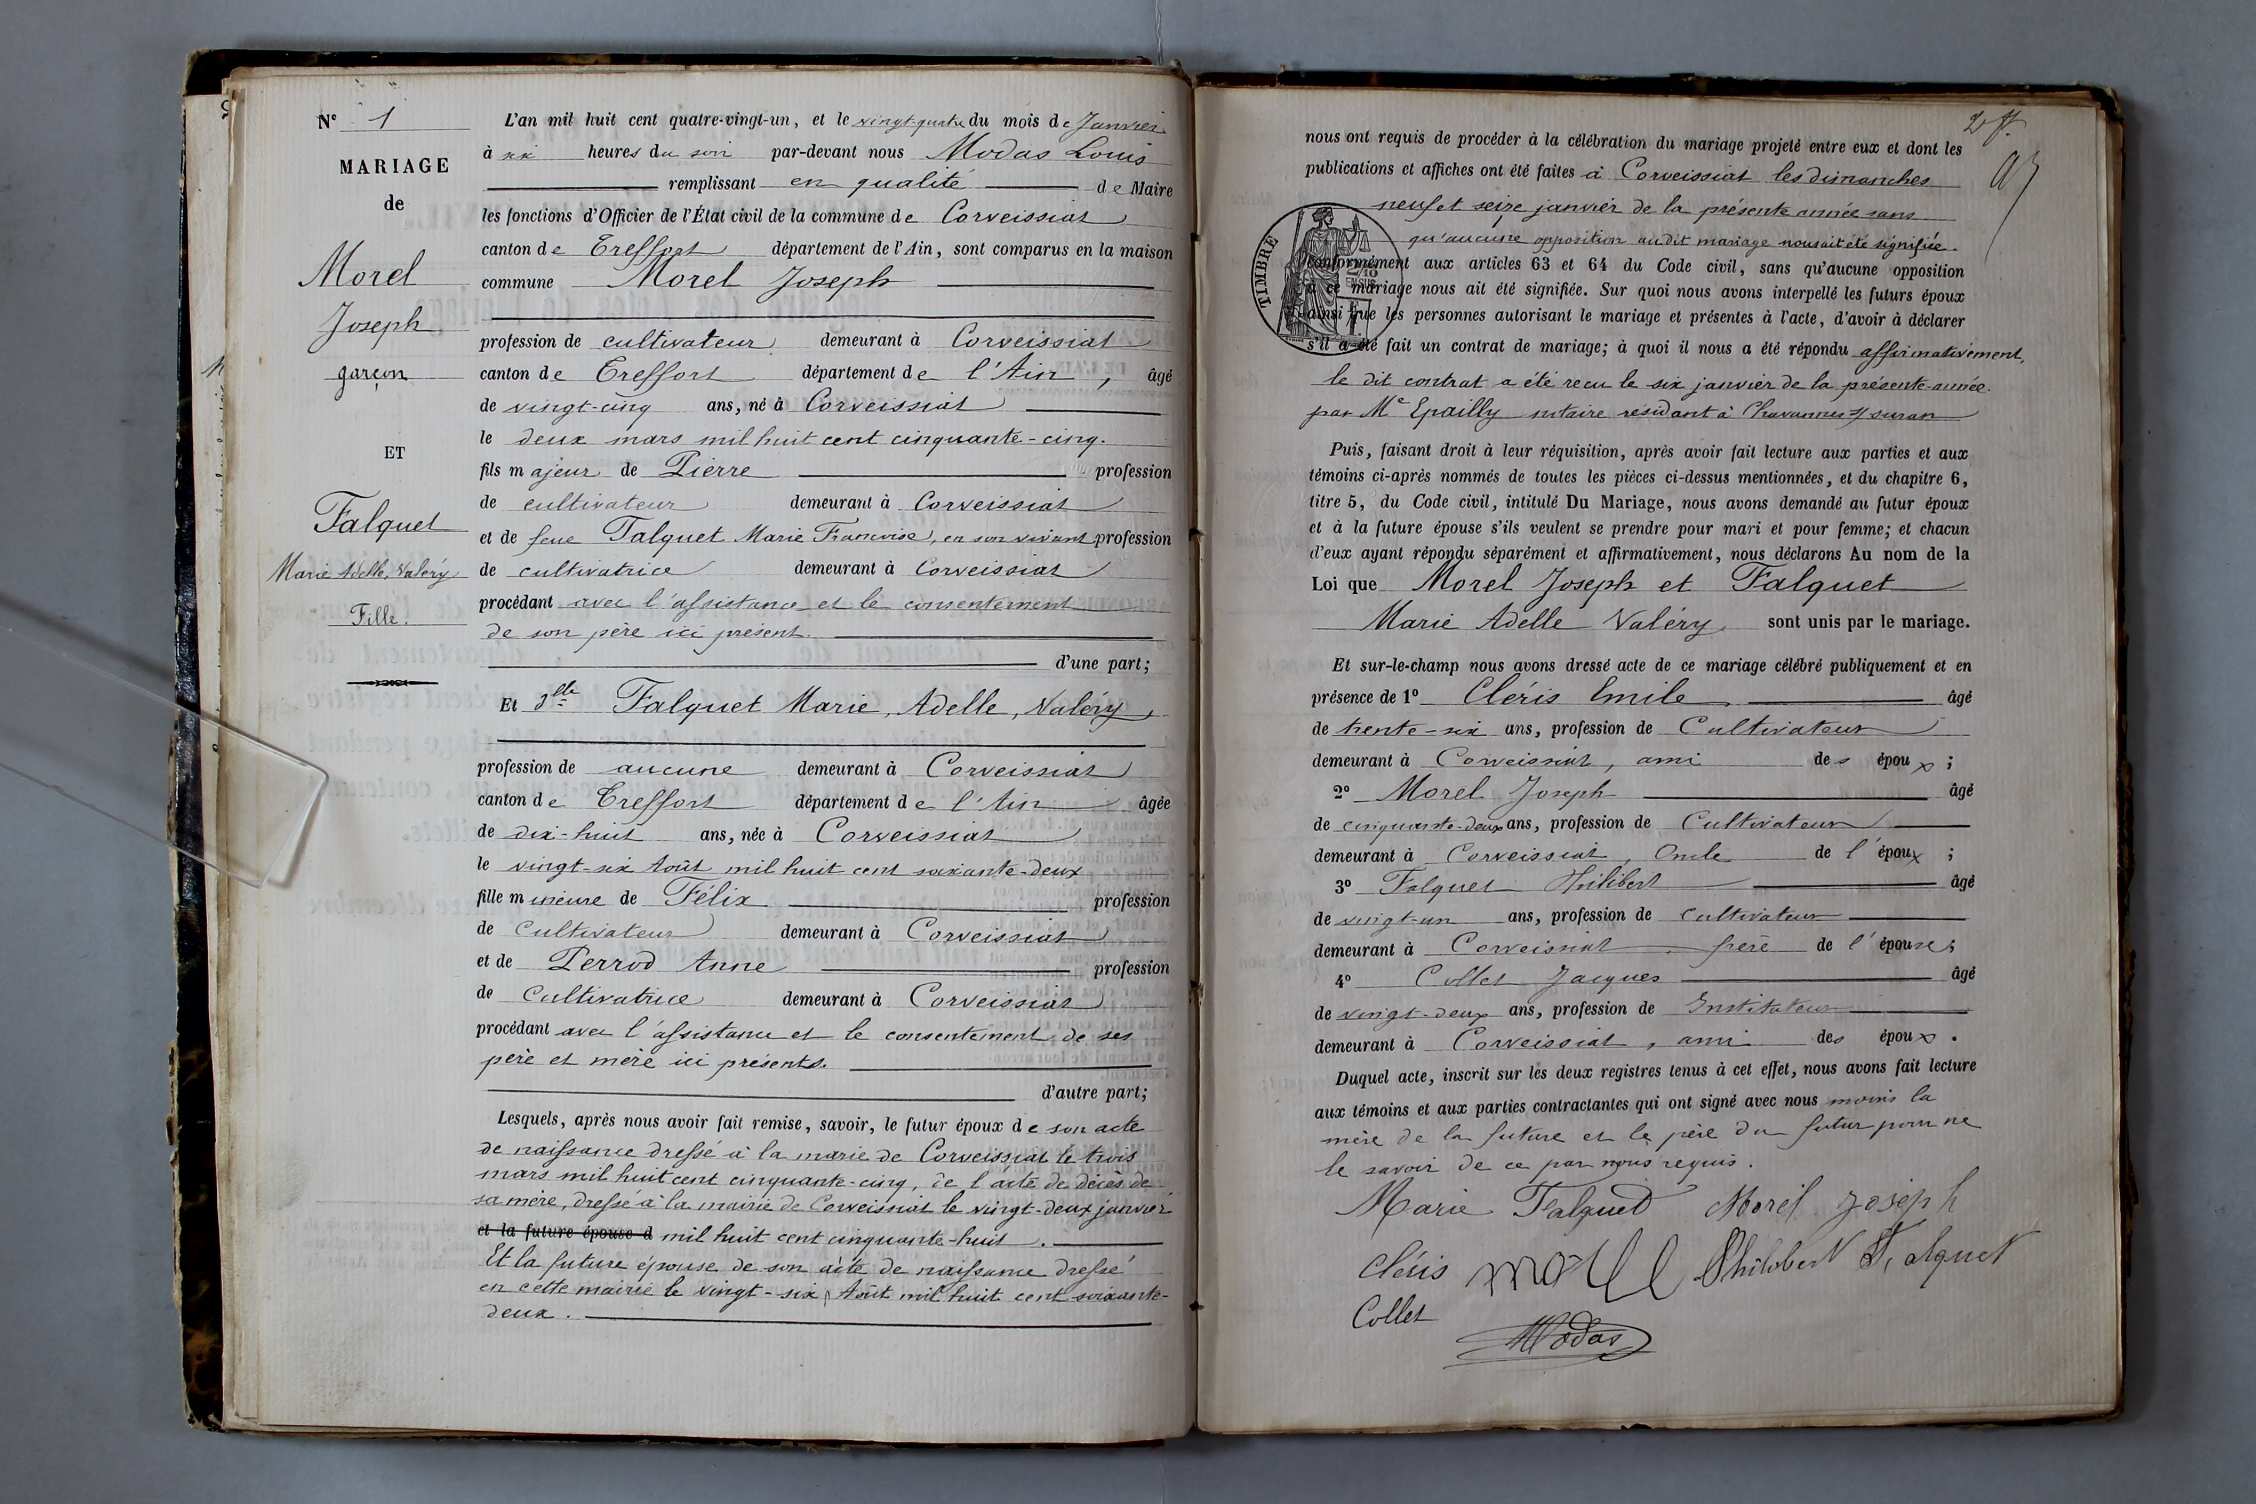 N° 1
MARIAGE
de
Morel
Joseph
garçon
ET
Falquet
Marie Adelle, Valéry
Fille.
L'an mil huit cent quatre-vingt-un, et le vingt-quatre du mois de Janvier
à six heures du soir par-devant nous Modas Louis
remplissant en qualité de Maire
les fonctions d'Officier de l'État civil de la commune de Corveissiat
canton de Treffort département de l'Ain, sont comparus en la maison
commune Morel Joseph
profession de cultivateur demeurant à Corveissiat
canton de Treffort département de l'Ain, âgé
de vingt-cinq ans, né à Corveissiat
le deux mars mil huit cent cinquante-cinq.
fils majeur de Pierre profession
de cultivateur demeurant à Corveissiat
et de feue Falquet Marie Francoise, en son vivant profession
de cultivatrice demeurant à Corveissiat
procédant avec l'assistance et le consentement
de son père ici présent.
d'une part;
Et dlle Falquet Marie, Adelle, Valéry,
profession de aucune demeurant à Corveissiat
canton de Treffort département de l'Ain âgée
de dix-huit ans, née à Corveissiat
le vingt-six Août mil huit cent soixante-deux
fille mineure de Félix profession
de Cultivateur demeurant à Corveissiat
et de Perrod Anne profession
de Cultivatrice demeurant à Corveissiat
procédant avec l'assistance et le consentement de ses
père et mère ici présents.
d'autre part;
Lesquels, après nous avoir fait remise, savoir, le futur époux de son acte
de naissance dressé à la marie de Corveissiat le trois
mars mil huit cent cinquante-cinq, de l'acte de décès de
sa mère, dressé à la mairie de Corveissiat le vingt-deux janvier
et la future épouse d mil huit cent cinquante-huit.
Et la future épouse de son acte de naissance dressé
en cette mairie le vingt-six Août mil huit cent soixante-
deux.
nous ont requis de procéder à la célébration du mariage projeté entre eux et dont les
publications et affiches ont été faites à Corveissiat les dimanches
neuf et seize janvier de la présente année sans
qu'aucune opposition audit mariage nous ait été signifiée.
TIMBRE
conformément aux articles 63 et 64 du Code civil, sans qu'aucune opposition
à ce mariage nous ait été signifiée. Sur quoi nous avons interpellé les futurs époux
ainsi que les personnes autorisant le mariage et présentes à l'acte, d'avoir à déclarer
s'il a été fait un contrat de mariage; à quoi il nous a été répondu affirmativement,
le dit contrat a été recu le six janvier de la présente année.
par Me Epailly notaire résidant à Chavannes s/ suran
Puis, faisant droit à leur réquisition, après avoir fait lecture aux parties et aux
témoins ci-après nommés de toutes les pièces ci-dessus mentionnées, et du chapitre 6,
titre 5, du Code civil, intitulé Du Mariage, nous avons demandé au futur époux
et à la future épouse s'ils veulent se prendre pour mari et pour femme; et chacun
d'eux ayant répondu séparément et affirmativement, nous déclarons Au nom de la
Loi que Morel Joseph et Falquet
Marie Adelle Valéry, sont unis par le mariage.
Et sur-le-champ nous avons dressé acte de ce mariage célébré publiquement et en
présence de 1° Cléris Emile, âgé
de trente-six ans, profession de Cultivateur
demeurant à Corveissiat, ami des époux;
2° Morel Joseph âgé
de cinquante-deux ans, profession de Cultivateur
demeurant à Corveissiat, Oncle de l'époux;
3° Falquet Philibert âgé
de vingt-un ans, profession de cultivateur
demeurant à Corveissiat, frère de l'épouse;
4° Collet Jacques âgé
de vingt-deux ans, profession de Instituteur
demeurant à Corveissiat, ami des époux.
Duquel acte, inscrit sur les deux registres tenus à cet effet, nous avons fait lecture
aux témoins et aux parties contractantes qui ont signé avec nous moins la
mère de la future et le père du futur pour ne
le savoir de ce par nous requis.
Marie Falquet Morel Joseph
Cléris Morel Philibert Falquet
Collet
Modas